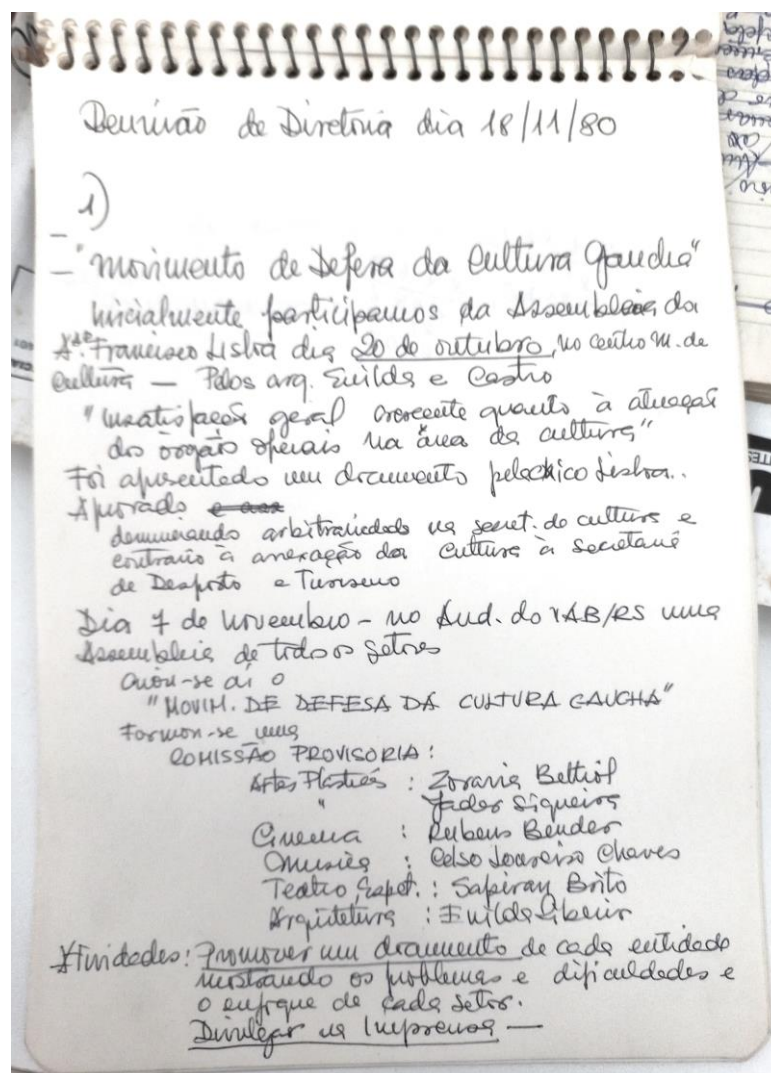 Reunião de Diretoria dia 18/11/80
1)
- "Movimento de Defesa da Cultura Gaucha"
Inicialmente participamos da Assembleia da
Ass. Francisco Lisboa dia 20 de outubro, no centro M. de
Cultura — Pelos arq. Enilda e Castro
"Insatisfação geral crescente quanto à atuação
dos órgão oficiais na área da cultura"
Foi apresentado um documento pela Chico Lisboa..
Aprovado
denunciando arbitrariedade na secret. de cultura e
contrario à anexação da Cultura à Secretaria
de Desporto e Turismo
Dia 7 de novembro - no Aud. do IAB/RS uma
Assembleia de todos os setores
Criou-se ai o
"MOVIM. DE DEFESA DA CULTURA GAUCHA"
Formou-se uma
COMISSÃO PROVISORIA:
Artes Plásticas : Zoravia Bettiol
" Jader Siqueira
Cinema : Rubens Bender
Musica : Celso Loureiro Chaves
Teatro, Espet. : Sapiran Brito
Arquitetura : Enilda Ribeiro
Atividades: Promover um documento de cada entidade
mostrando os problemas e dificuldades e
o enfoque de cada setor.
Divulgar na Imprensa —